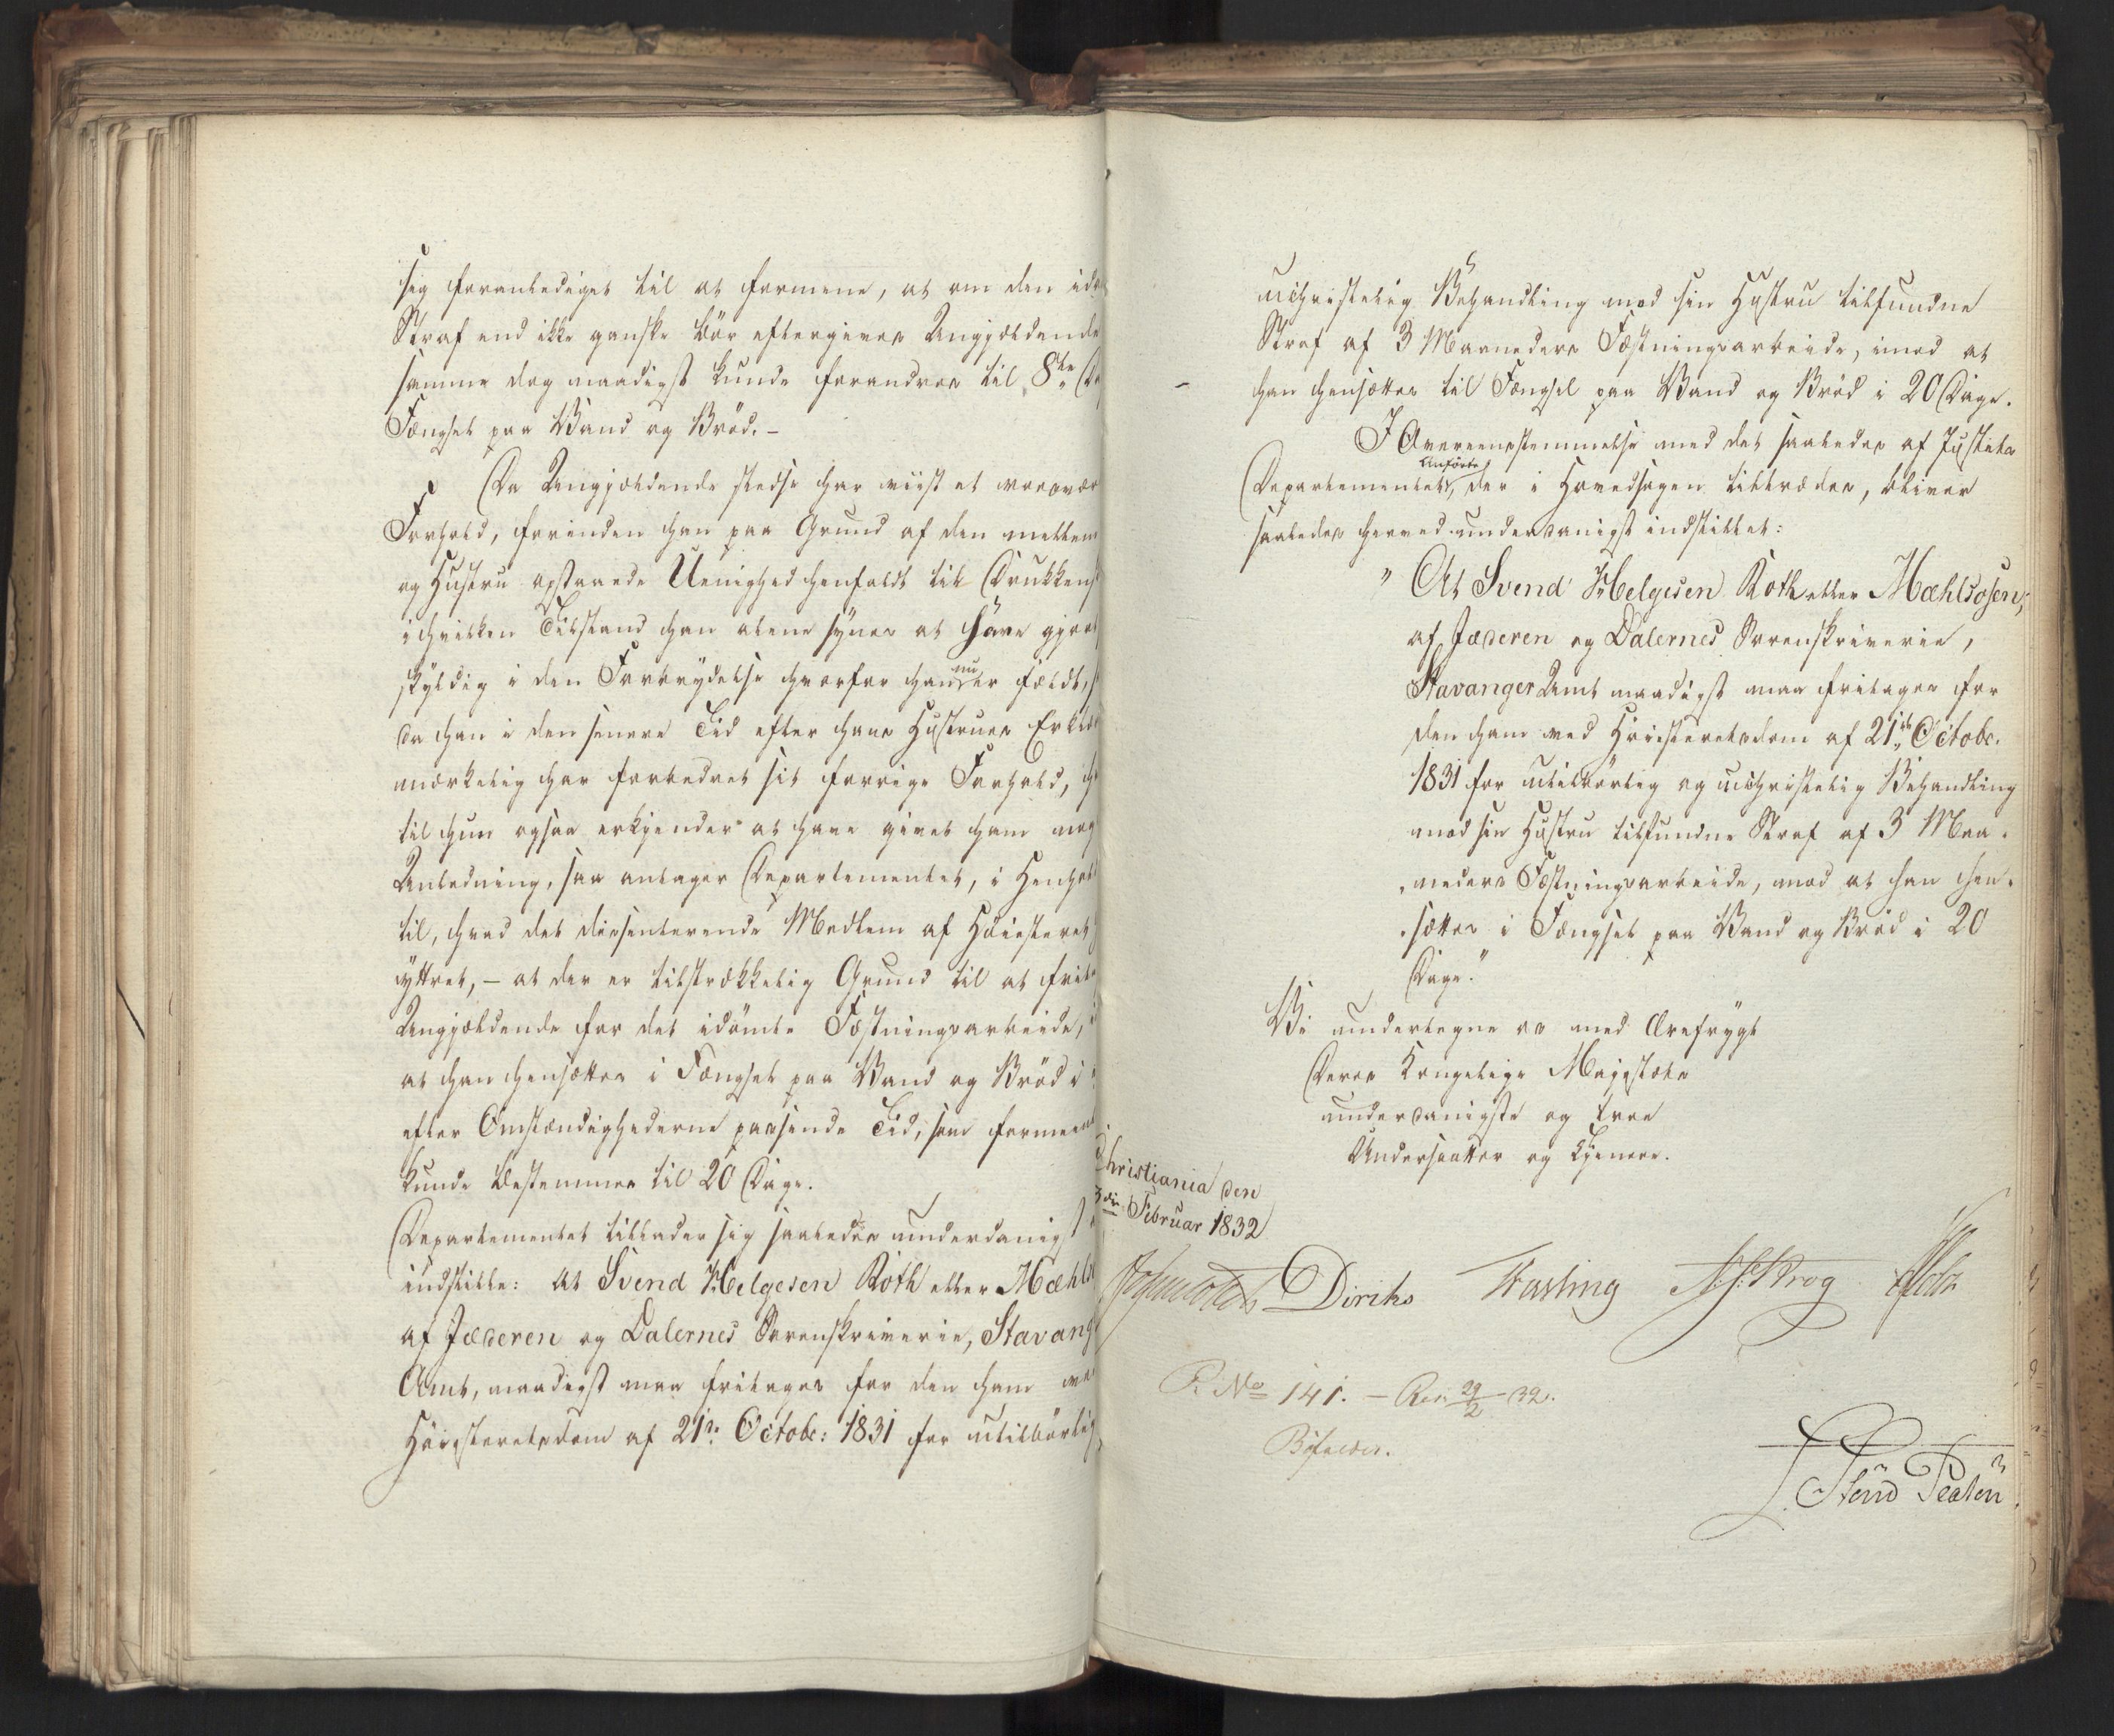 sig foranlediget til at formene, at om den idø
Straf end ikke ganske bør eftergives Angjældende
samme dog naadigst kunde forandres til 8te Da
Fængsel paa Vand og Brød. –
Da Angjældende stedse har viist et vanær
Forhold, forinden han paa Grund af den mellem
og Hustru opstaaede Uenighed henfaldt til Drukkensk
i hvilken Tilstand han alene synes at have gjort
skyldig i den Forbrydelse hvorfor han nu er fældt,
da han i den senere Tid efter hans Hustrues Erklæ
mærkelig har forbedret sit forrige Forhold, h
til hun ogsaa erkjender at have givet ham nog
Anledning, saa antager Departementet, i Henhold
til, hvad det dissenterende Medlem af Høiesteret
yttret, – at der er tilstrækkelig Grund til at frit
Angjældende for det idømte Fæstningsarbeide,
at han hensættes i Fængsel paa Vand og Brød i
efter Omstændighederne passende Tid, som formeent
kunde bestemmes til 20 Dage.
Departementet tillader sig saaledes underdanigst
indstille: At Svend Helgesen Roth eller Mæhls
af Jæderen og Dalernes Sorenskriverie, Stavang
Amt, naadigst maa fritages for den ham ve
Høiesteretsdom af 21de Octobr: 1831 for utilbørlig
uchristelig Behandling mod sin Hustru tilfundne
Straf af 3 Maaneders Fæstningsarbeide, imod at
han hensættes til Fængsel paa Vand og Brød i 20 Dage.
I Overeensstemmelse med det saaledes af Justits
Departementet anførte, der i Hovedsagen tiltrædes, bliver
saaledes herved underdanigst indstillet:
"At Svend Helgesen Roth eller Mæhlsosen,
af Jæderen og Dalernes Sorenskriverie,
Stavanger Amt naadigst maa fritages for
den ham ved Høiesteretsdom af 21de Octobr.
1831 for utilbørlig og uchristelig Behandling
mod sin Hustru tilfundne Straf af 3 Maa-
neders Fæstningsarbeide, mod at han hen-
sættes i Fængsel paa Vand og Brød i 20
Dage."
Vi undertegne os med Ærefrygt
Deres Kongelige Majestæts
underdanigste og troe
Undersaatter og Tjenere.
Christiania den
3die Februar 1832
Diriks Fasting Krog
P. No 141. – Res. 29/2 – 32.
Bifaldes.